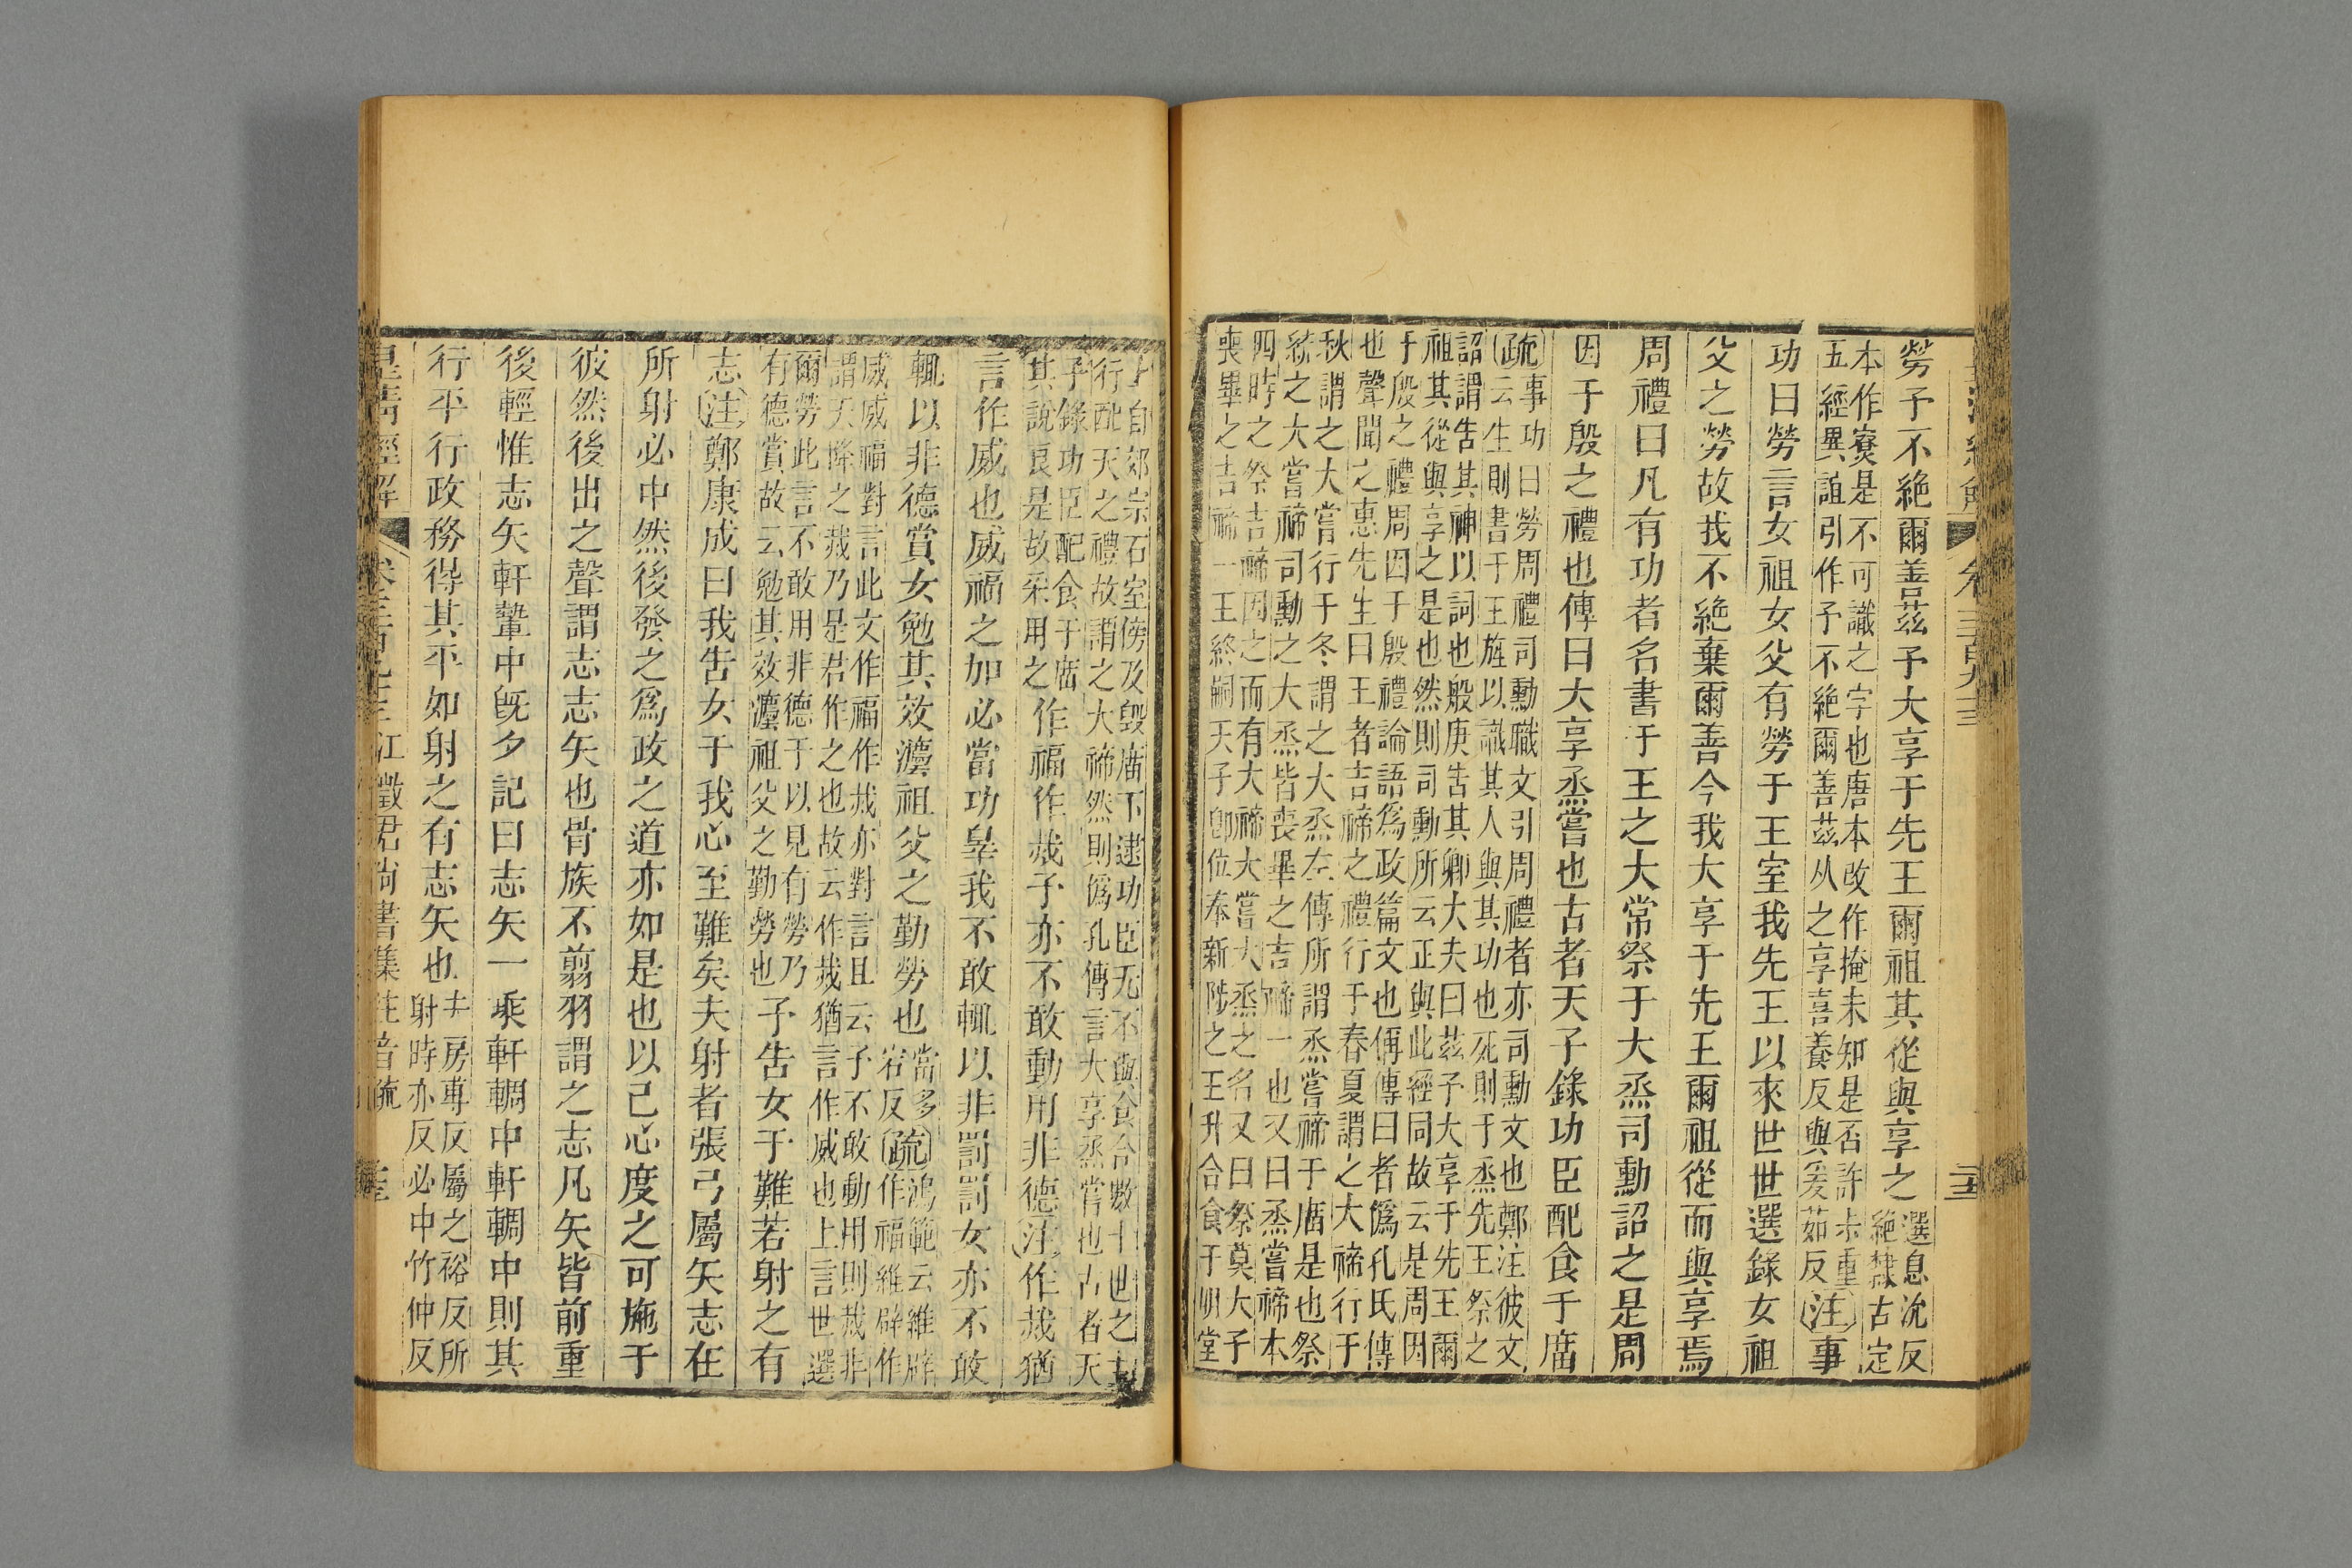 勞予不絶爾善茲予大享于先王爾祖其從與享之
選息沇反
絶隸古定
本作寮是不可識之字也唐本改作掩未知是否許
五經異誼引作予不絶爾善茲从之享喜養反與爰茹反
注事
功曰勞言女祖女父有勞于王室我先王以來世世選錄女祖
父之勞故我不絶棄爾善今我大享于先王爾祖從而與享焉
周禮曰凡有功者名書于王之大常祭于大烝司勳詔之是周
因于殷之禮也傳曰大享烝嘗也古者天子錄功臣配食于庿
疏事功曰勞周禮司勳職文引周禮者亦司勳文也鄭注彼文
云生則書于王旌以識其人與其功也死則于烝先王祭之
詔謂告其神以詞也般庚告其卿大夫曰茲予大享于先王爾
祖其從與享之是也然則司勳所云正與此經同故云是周因
于殷之禮周因于殷禮論語爲政篇文也偁傳曰者僞孔氏傳
也聲聞之惠先生曰王者吉禘之禮行于春夏謂之大禘行于
秋謂之大嘗行于冬謂之大烝左傳所謂烝嘗禘于庿是也祭
統之大嘗禘司勳之大烝皆喪畢之吉禘一也又曰烝嘗禘本
四時之祭吉禘因之而有大禘大嘗大烝之名又曰祭莫大于
喪畢之吉禘一王終嗣天子卽位奉新陟之王升合食于明堂
上自郊宗石室傍及毀庿下逮功臣无不與食合數十世之主
行配天之禮故謂之大禘然則僞孔傳言大享烝嘗也古者天
子錄功臣配食于庿
其說良是故采用之
作福作烖予亦不敢動用非德注作烖猶
言作威也威福之加必當功辠我不敢輒以非罰罰女亦不敢
輒以非德賞女勉其效灋祖父之勤勞也
當多
宕反
疏鴻範云維辟
作福維辟作
威威福對言此文作福作烖亦對言且云予不敢動用則烖非
謂天降之烖乃是君作之也故云作烖猶言作威也上言世選
爾勞此言不敢用非德于以見有勞乃
有德賞故云勉其效灋祖父之勤勞也
予告女于難若射之有
志注鄭康成曰我告女于我心至難矣夫射者張弓屬矢志在
所射必中然後發之爲政之道亦如是也以己心度之可施于
彼然後出之聲謂志志矢也骨族不翦羽謂之志凡矢皆前重
後輕惟志矢軒輖中旣夕記曰志矢一乘軒輖中軒輖中則其
行平行政務得其平如射之有志矢也
夫房專反屬之裕反所
射時亦反必中竹仲反
皇淸經解 卷三百九十三 江徵君尚書集注音疏